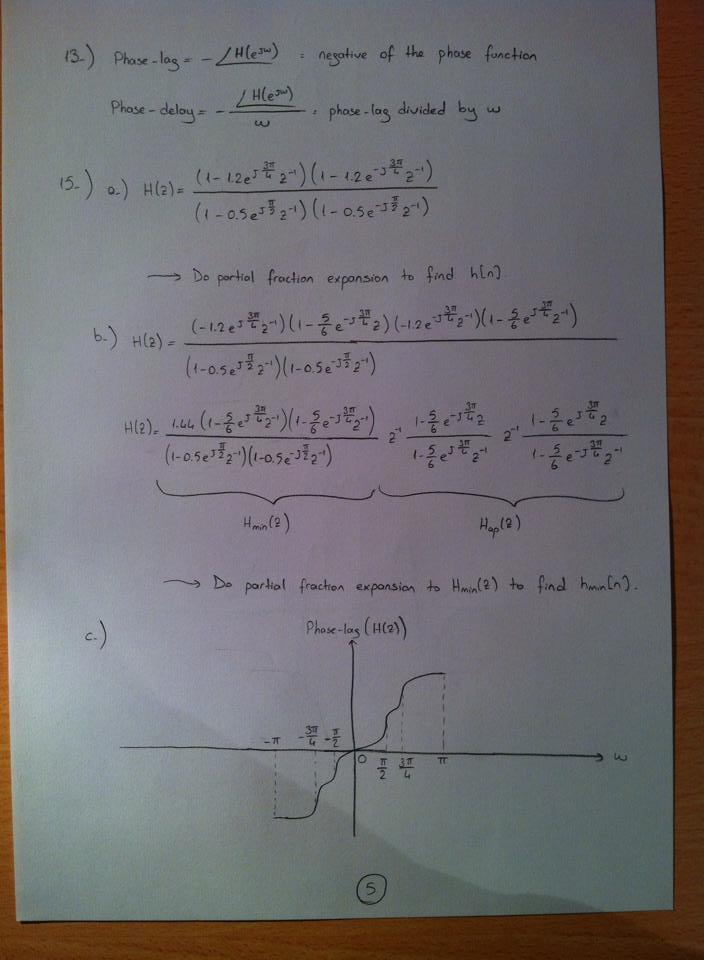 13-) Phase-lag = - ∠H(e^jω) : negative of the phase function
Phase-delay = - ∠H(e^jω) / ω : phase-lag divided by ω
15-) a-) H(z) = (1 - 1.2e^{J 3π/4} z^-1)(1 - 1.2e^{-J 3π/4} z^-1) / (1 - 0.5e^{J π/2} z^-1)(1 - 0.5e^{-J π/2} z^-1)
→ Do partial fraction expansion to find h[n]
b-) H(z) = (-1.2e^{J 3π/4} z^-1)(1 - 5/6 e^{-J 3π/4} z)(-1.2e^{-J 3π/4} z^-1)(1 - 5/6 e^{J 3π/4} z^-1) / (1-0.5e^{J π/2} z^-1)(1-0.5e^{-J π/2} z^-1)
H(z) = 1.44 (1-5/6 e^{J 3π/4} z^-1)(1-5/6 e^{-J 3π/4} z^-1) / (1-0.5e^{J π/2} z^-1)(1-0.5e^{-J π/2} z^-1) z^-1 (1-5/6 e^{-J 3π/4} z) / (1-5/6 e^{J 3π/4} z^-1) z^-1 (1-5/6 e^{J 3π/4} z) / (1-5/6 e^{-J 3π/4} z^-1)
Hmin(z) Hap(z)
→ Do partial fraction expansion to Hmin(z) to find hmin[n].
c-) Phase-lag (H(z))
-π -3π/4 -π/2 0 π/2 3π/4 π ω
5